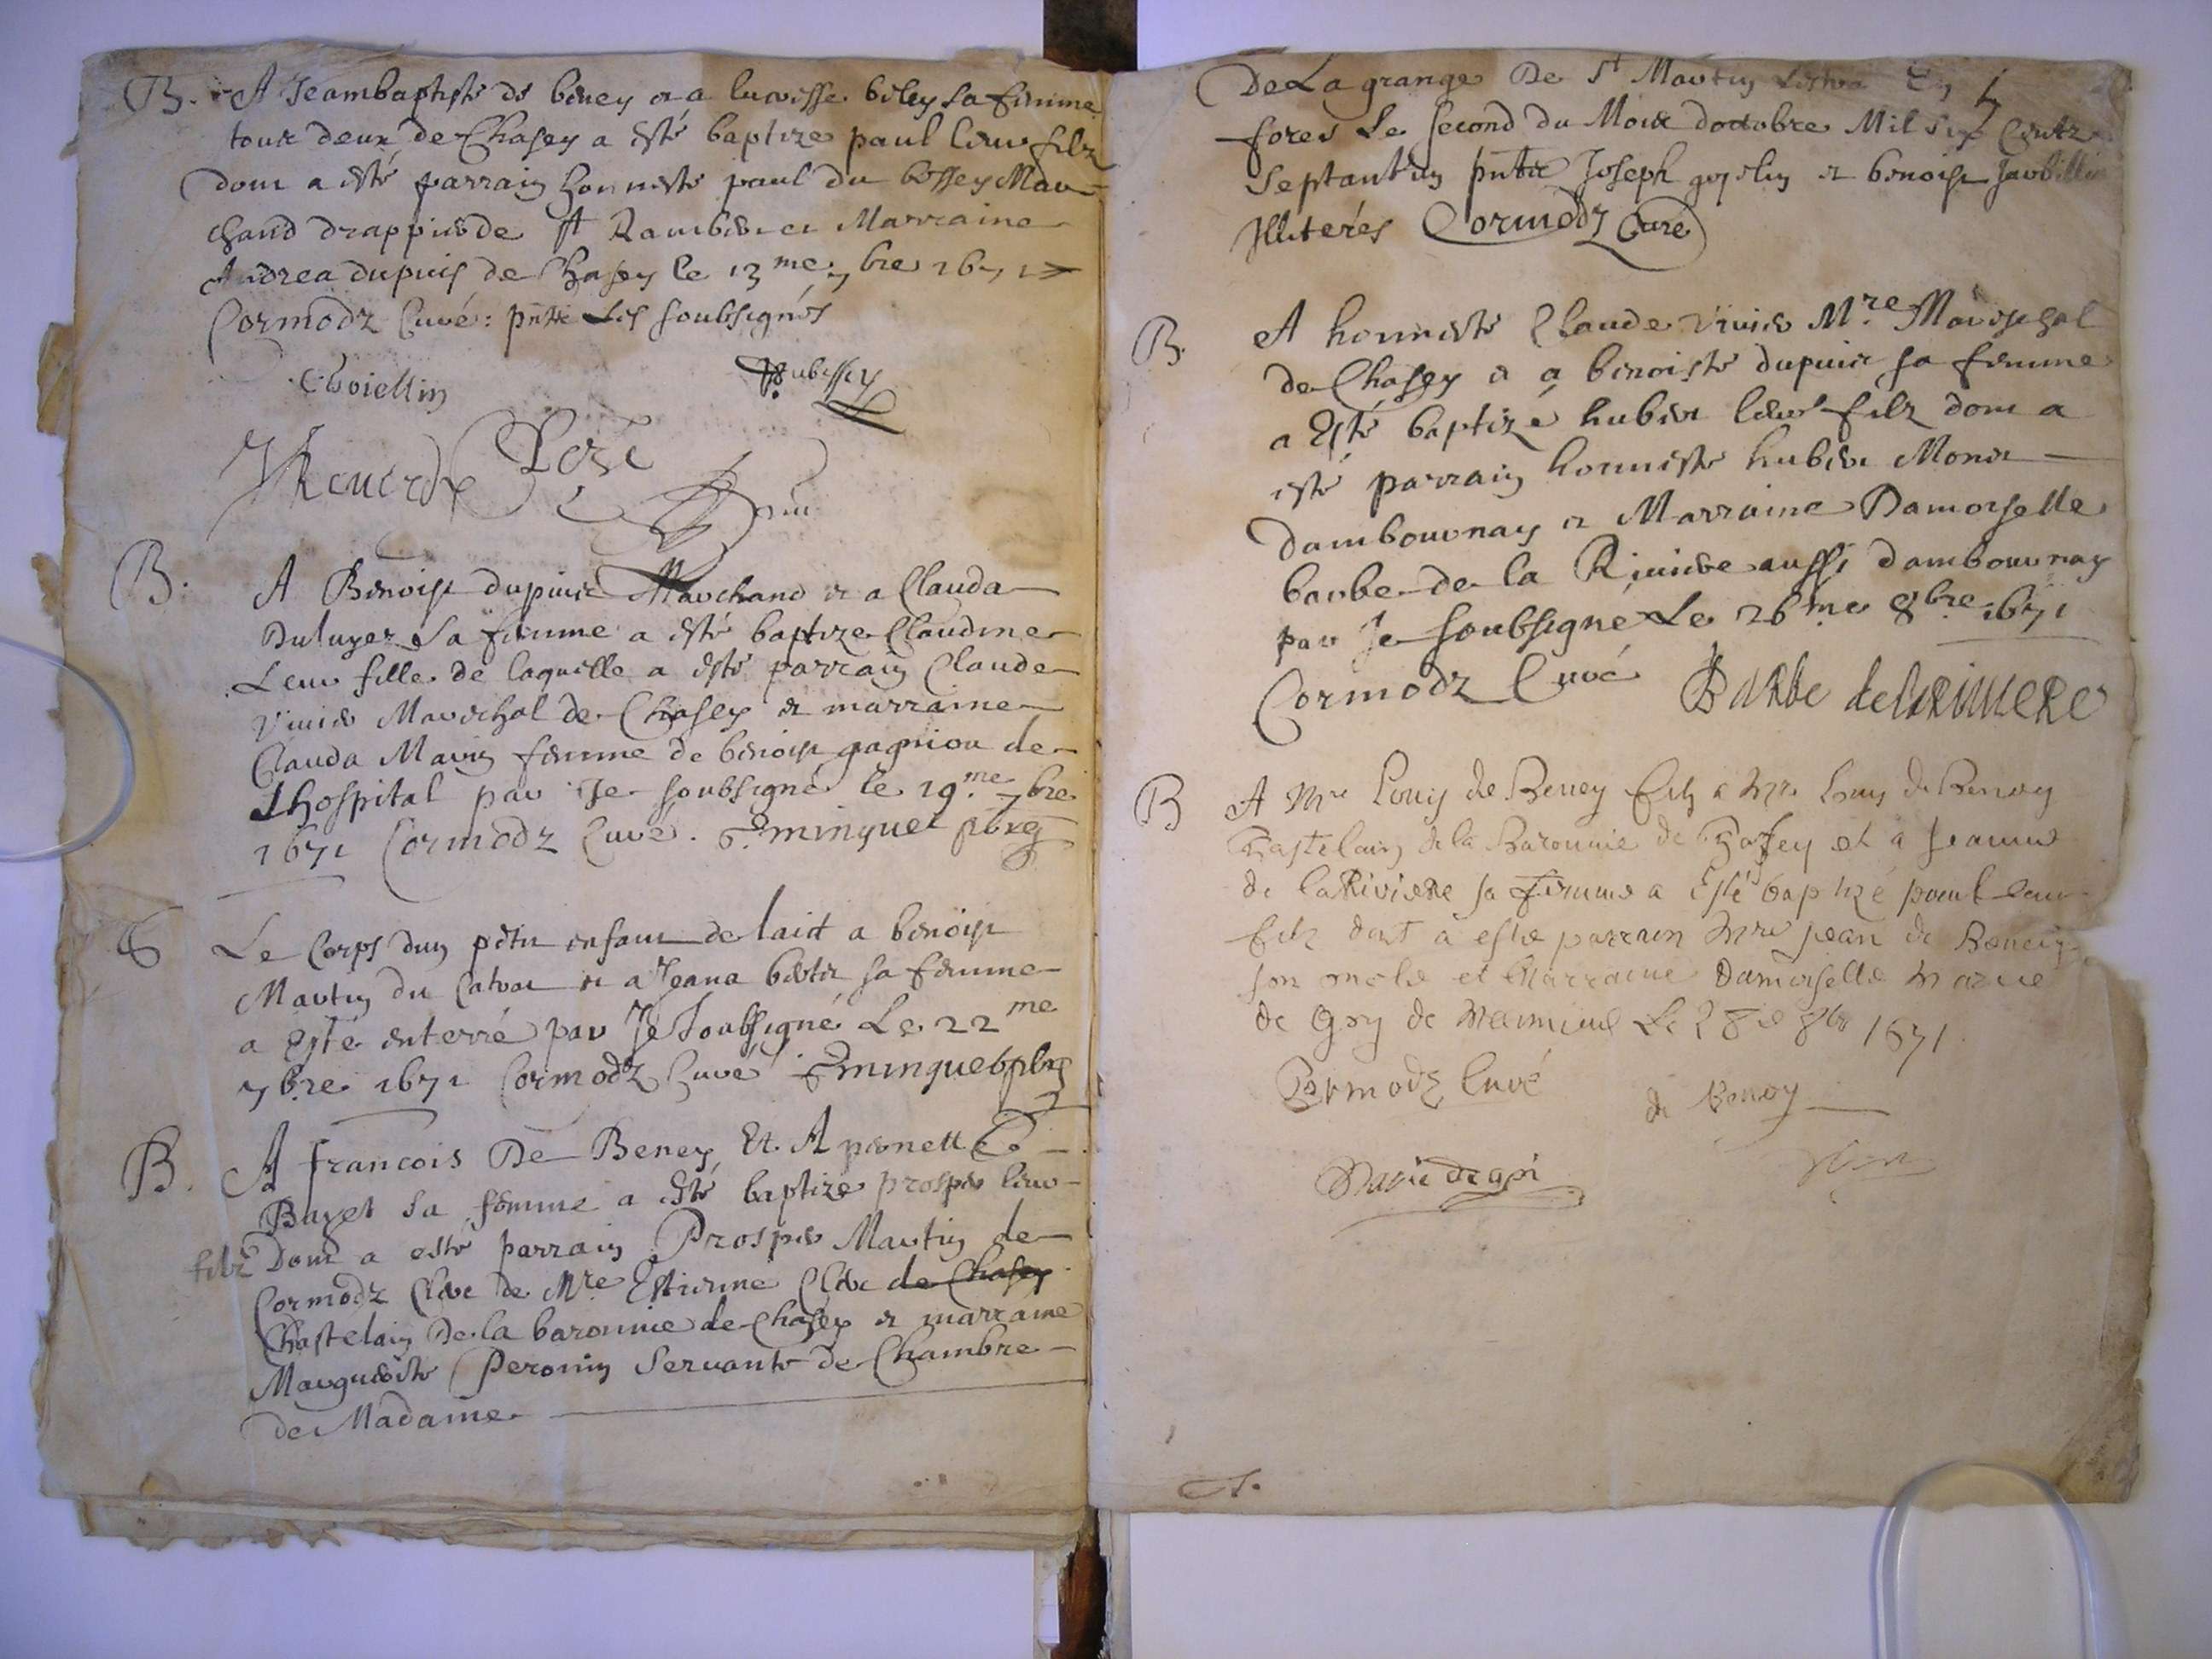 B. A Jeambaptiste de beney et a lucresse biley sa femme
tout deux de Chasey a esté baptize paul leur filz
dont a esté parrain honneste paul du bessey Mar-
chand drappier de St Rambert et Marraine
Andrea dupuis de Chasey le 13me 7bre 1671
Cormodz Curé: pnt Les soubsignés
Choiellin
Dubessey
B. A Benoist dupuis Marchand et a Clauda
Duluyer sa femme a esté baptize Claudine
Leur fille de laquelle a esté parrain Claude
Vivier Mareschal de Chasey et marraine
Clauda Marin femme de benoist gagnion de
Lhospital par Je soubsigné le 19.me 7bre
1671 Cormodz Curé.
S Le Corps dun petit enfant de lait a benoist
Martin du et a Jeana sa femme
a Esté enterré par Je Soubsigné Le 22me
7bre 1671 Cormodz Curé
B. A francois De Beney Et A pernette
Bayet sa femme a esté baptize prosper leur
filz Dont a esté parrain Prosper Martin de
Cormodz Clerc de Mre Estienne Clerc de Chasey
Chastelain De la baronnie de Chasey et marraine
Marguerite Peronin Servante de Chambre
de Madame
De La grange De St Martin
le second du Mois doctobre Mil Six Centz
Septant'un Joseph et benoist
Illiterés Cormodz Curé
B. A honneste Claude Vivier Mre Mareschal
de Chasey et a benoiste dupuis sa femme
a Esté baptizé hubert leur filz dont a
esté parrain honneste hubert Monet
dambournay et Marraine Damoiselle
barbe de la Riviere aussi dambournay
par Je soubsigné Le 26me 8bre 1671
Cormodz Curé Barbe delariviere
B A Mre Louis de Beney filz a Mre Louis de Beney
Chastelain de la Baronnie de Chasey et a Jeanne
de la Riviere sa femme a Esté baptizé paul leur
filz dont a esté parrain Mre Jean de Beney
son oncle et Marraine Damoiselle Marie
de Gry de Le 28e 8bre 1671
Cormodz Curé
de Beney
Marie de gri